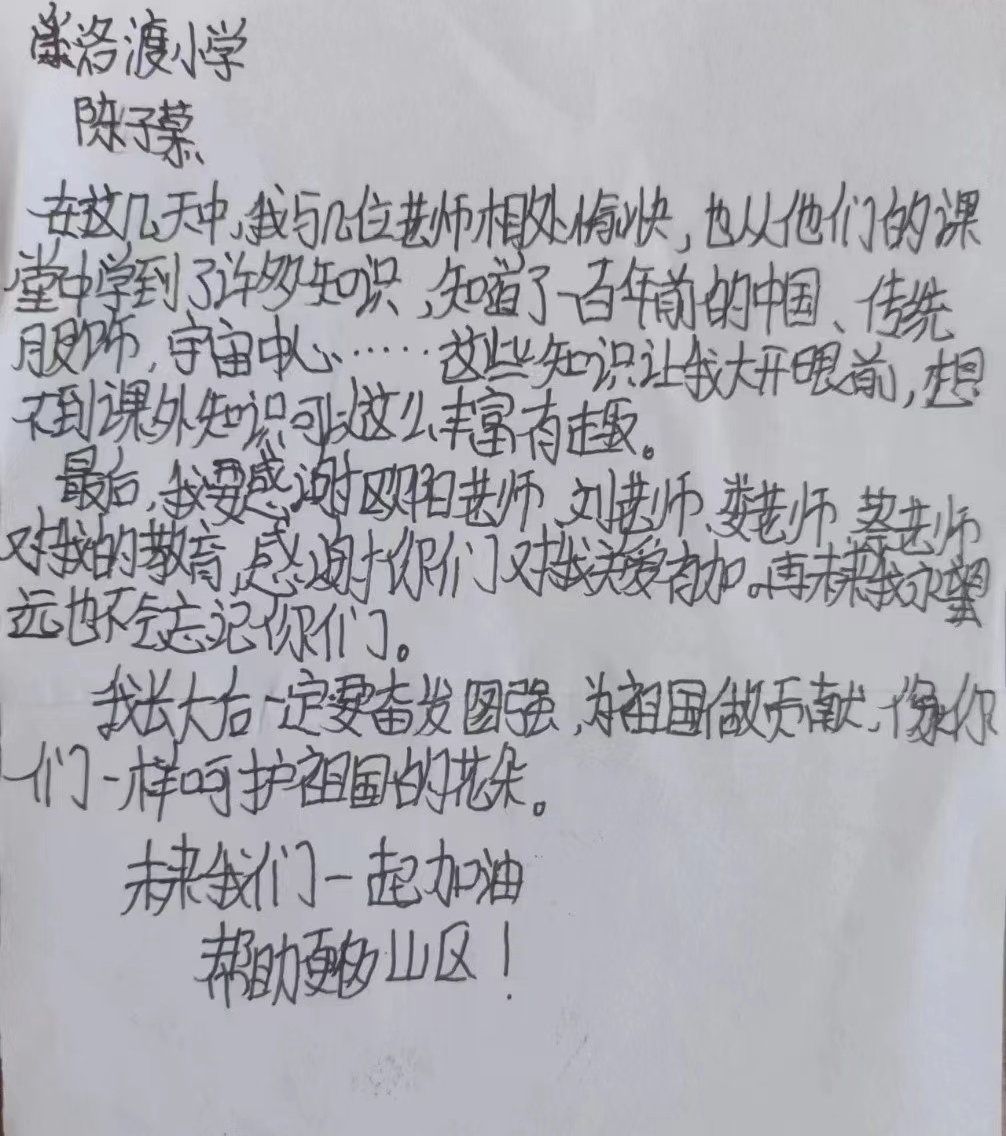 洛渡小学
陈子慕
在这几天中,我与几位老师相处愉快,也从他们的课
堂中学到了许多知识,知道了一百年前的中国、传统
服饰,宇宙中心……这些知识让我大开眼前,想
不到课外知识可以这么丰富有趣。
最后,我要感谢欧阳老师、刘老师、娄老师、蔡老师
对我的教育,感谢你们对我关爱有加。再未来我永望
远也不会忘记你们。
我长大后一定要奋发图强,为祖国做贡献,像你
们一样呵护祖国的花朵。
未来我们一起加油
帮助更多山区!